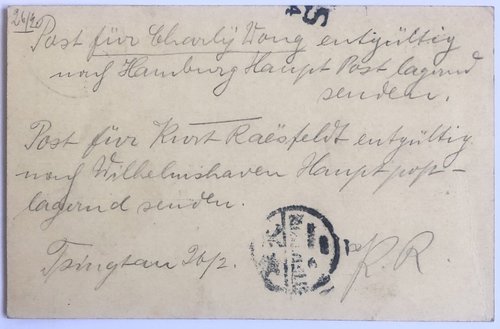 26/2.
54
Post für Charly Vong entgültig
nach Hamburg Haupt Post lagernd
senden.
Post für Kurt Raësfeldt entgültig
nach Wilhelmshaven Hauptpost-
lagernd senden.
Tsingtau 26/2.
R. R.